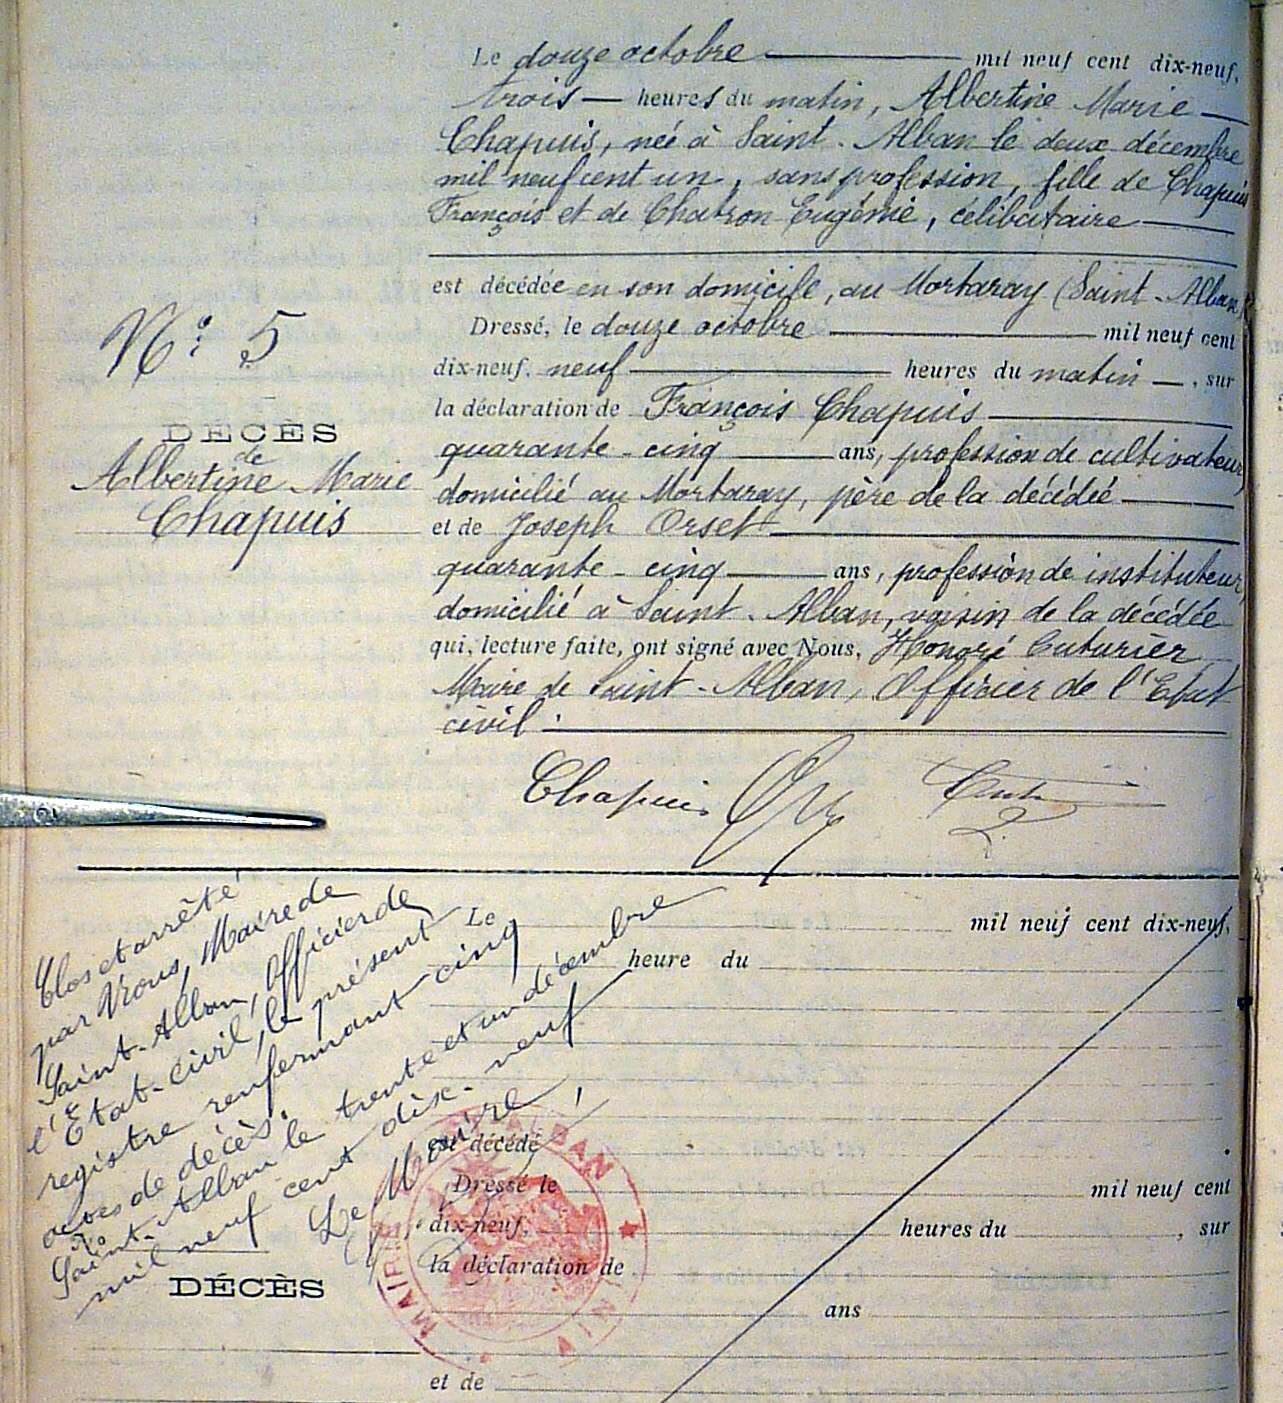 Le douze octobre mil neuf cent dix-neuf,
trois heures du matin, Albertine Marie
Chapuis, née à Saint-Alban le deux décembre
mil neuf cent un, sans profession, fille de Chapuis
François et de Chatron Eugénie, célibataire
est décédée en son domicile, au Mortaray (Saint-Alban)
Dressé, le douze octobre mil neuf cent
dix-neuf, neuf heures du matin, sur
la déclaration de François Chapuis
quarante-cinq ans, profession de cultivateur,
domicilié au Mortaray, père de la décédée
et de Joseph Orset
quarante-cinq ans, profession de instituteur,
domicilié à Saint-Alban, voisin de la décédée
qui, lecture faite, ont signé avec Nous, Honoré Cuturier
Maire de Saint-Alban, Officier de l'Etat
civil.
N° 5
DÉCÈS
de
Albertine Marie
Chapuis
Chapuis
Clos et arrêté
par Nous, Maire de
Saint-Alban, Officier de
l'Etat-civil, le présent
registre renfermant cinq
actes de décès.
Saint-Alban le trente et un décembre
mil neuf cent dix-neuf
Le Maire,
Le mil neuf cent dix-neuf,
heure du
est décédé
Dressé le mil neuf cent
dix-neuf, heures du , sur
la déclaration de
ans
et de
N°
DÉCÈS
MAIRIE ALBAN AIN